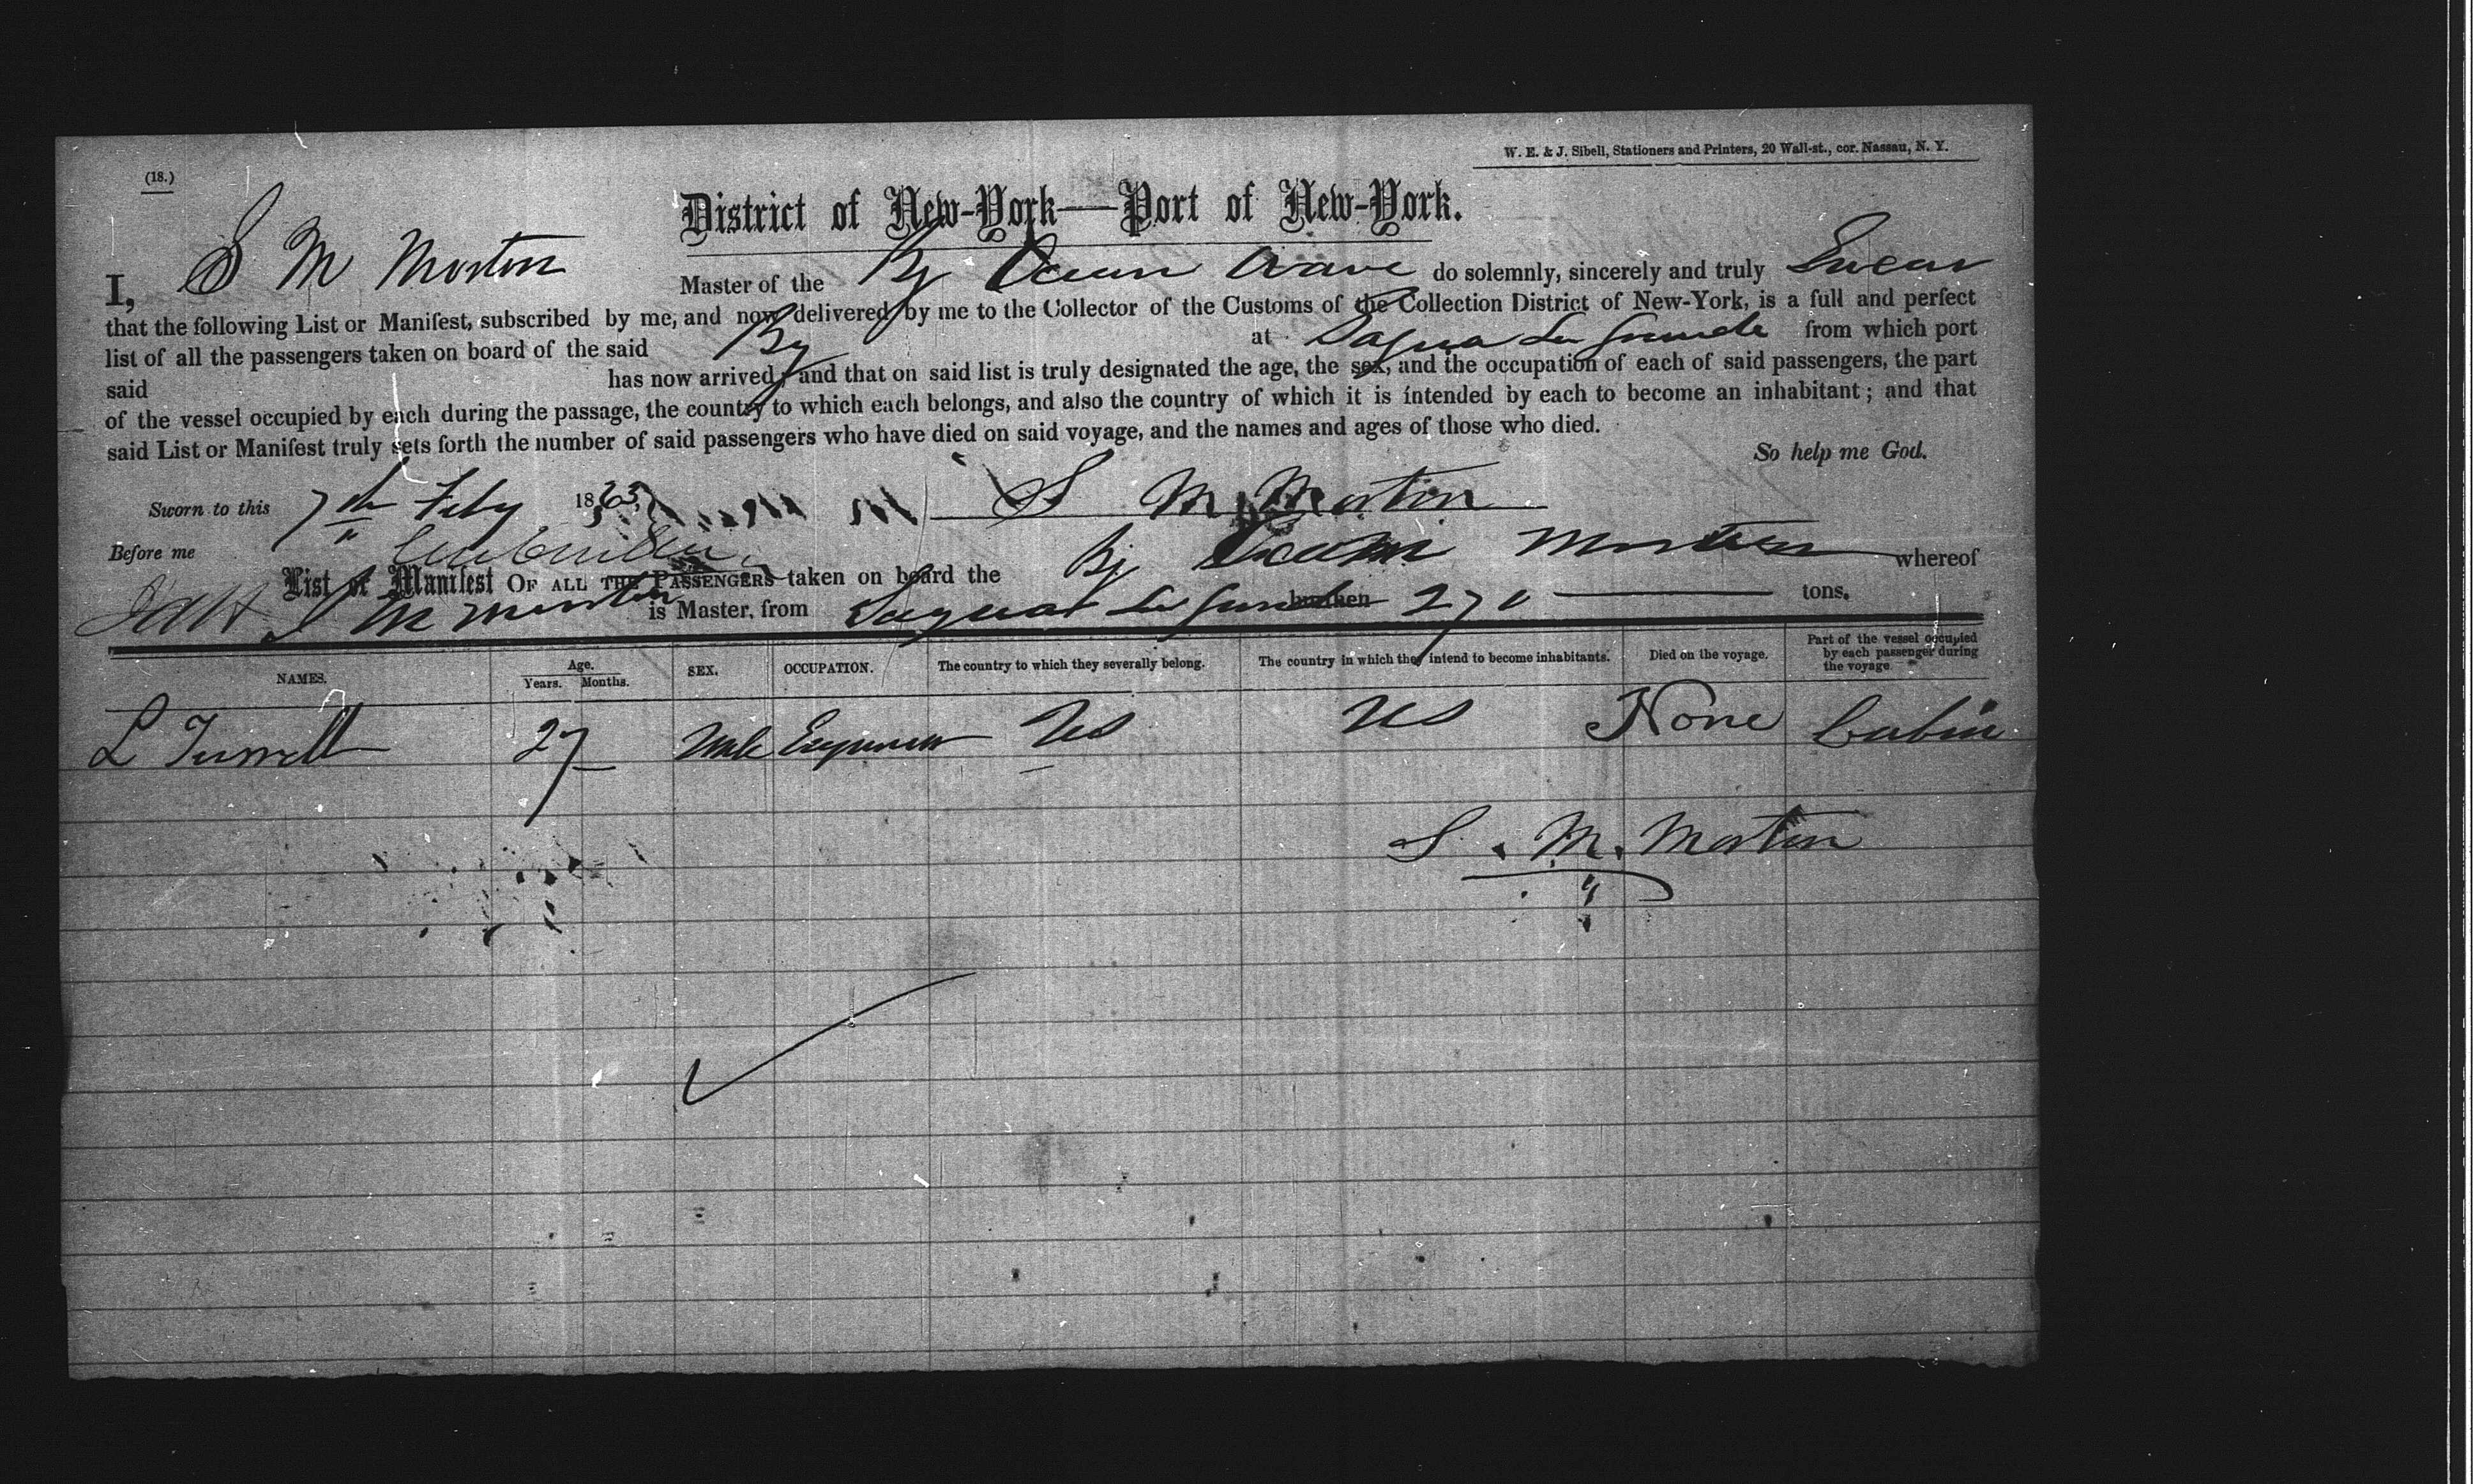 W. E. & J. Sibell, Stationers and Printers, 20 Wall-st., cor. Nassau, N. Y.
(18.)
District of New-York—Port of New-York.
I, S M Morton Master of the Bg Ocean Wave do solemnly, sincerely and truly Swear
that the following List or Manifest, subscribed by me, and now delivered by me to the Collector of the Customs of the Collection District of New-York, is a full and perfect
list of all the passengers taken on board of the said Bg at Sagua La Grande from which port
said has now arrived; and that on said list is truly designated the age, the sex, and the occupation of each of said passengers, the part
of the vessel occupied by each during the passage, the country to which each belongs, and also the country of which it is intended by each to become an inhabitant; and that
said List or Manifest truly sets forth the number of said passengers who have died on said voyage, and the names and ages of those who died.
So help me God.
Sworn to this 7th Feby 1863 S M Morton
Before me
List or Manifest OF ALL THE PASSENGERS taken on board the Bg Ocean whereof
S M Morton is Master, from Sagua La Grande burthen 270 tons.
NAMES. Age. Years. Months. SEX. OCCUPATION. The country to which they severally belong. The country in which they intend to become inhabitants. Died on the voyage. Part of the vessel occupied by each passenger during the voyage
L Turrell 27 Male Engineer US US None Cabin
S. M. Morton